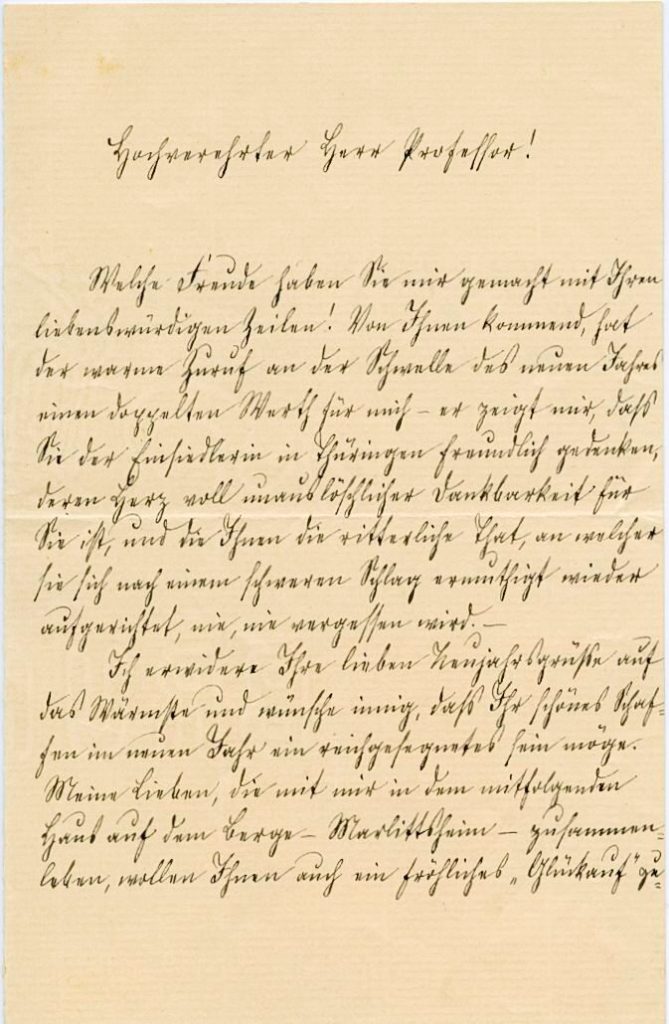 Hochverehrter Herr Professor!
Welche Freude haben Sie mir gemacht mit Ihren
liebenswürdigen Zeilen! Von Ihnen kommend, hat
der warme Zuruf an der Schwelle des neuen Jahres
einen doppelten Werth für mich – er zeigt mir, daß
Sie der Einsiedlerin in Thüringen freundlich gedenken,
deren Herz voll unauslöschlicher Dankbarkeit für
Sie ist, und die Ihnen die ritterliche That, an welcher
sie sich nach einem schweren Schlag ermuthigt wieder
aufgerichtet, nie, nie vergessen wird. –
Ich erwidere Ihre lieben Neujahrsgrüße auf
das Wärmste und wünsche innig, daß Ihr schönes Schaf-
fen im neuen Jahr ein reichgesegnetes sein möge.
Meine Lieben, die mit mir in dem mitfolgenden
Haus auf dem Berge – Marlittsheim – zusammen-
leben, wollen Ihnen auch ein fröhliches „Glückauf" zu-